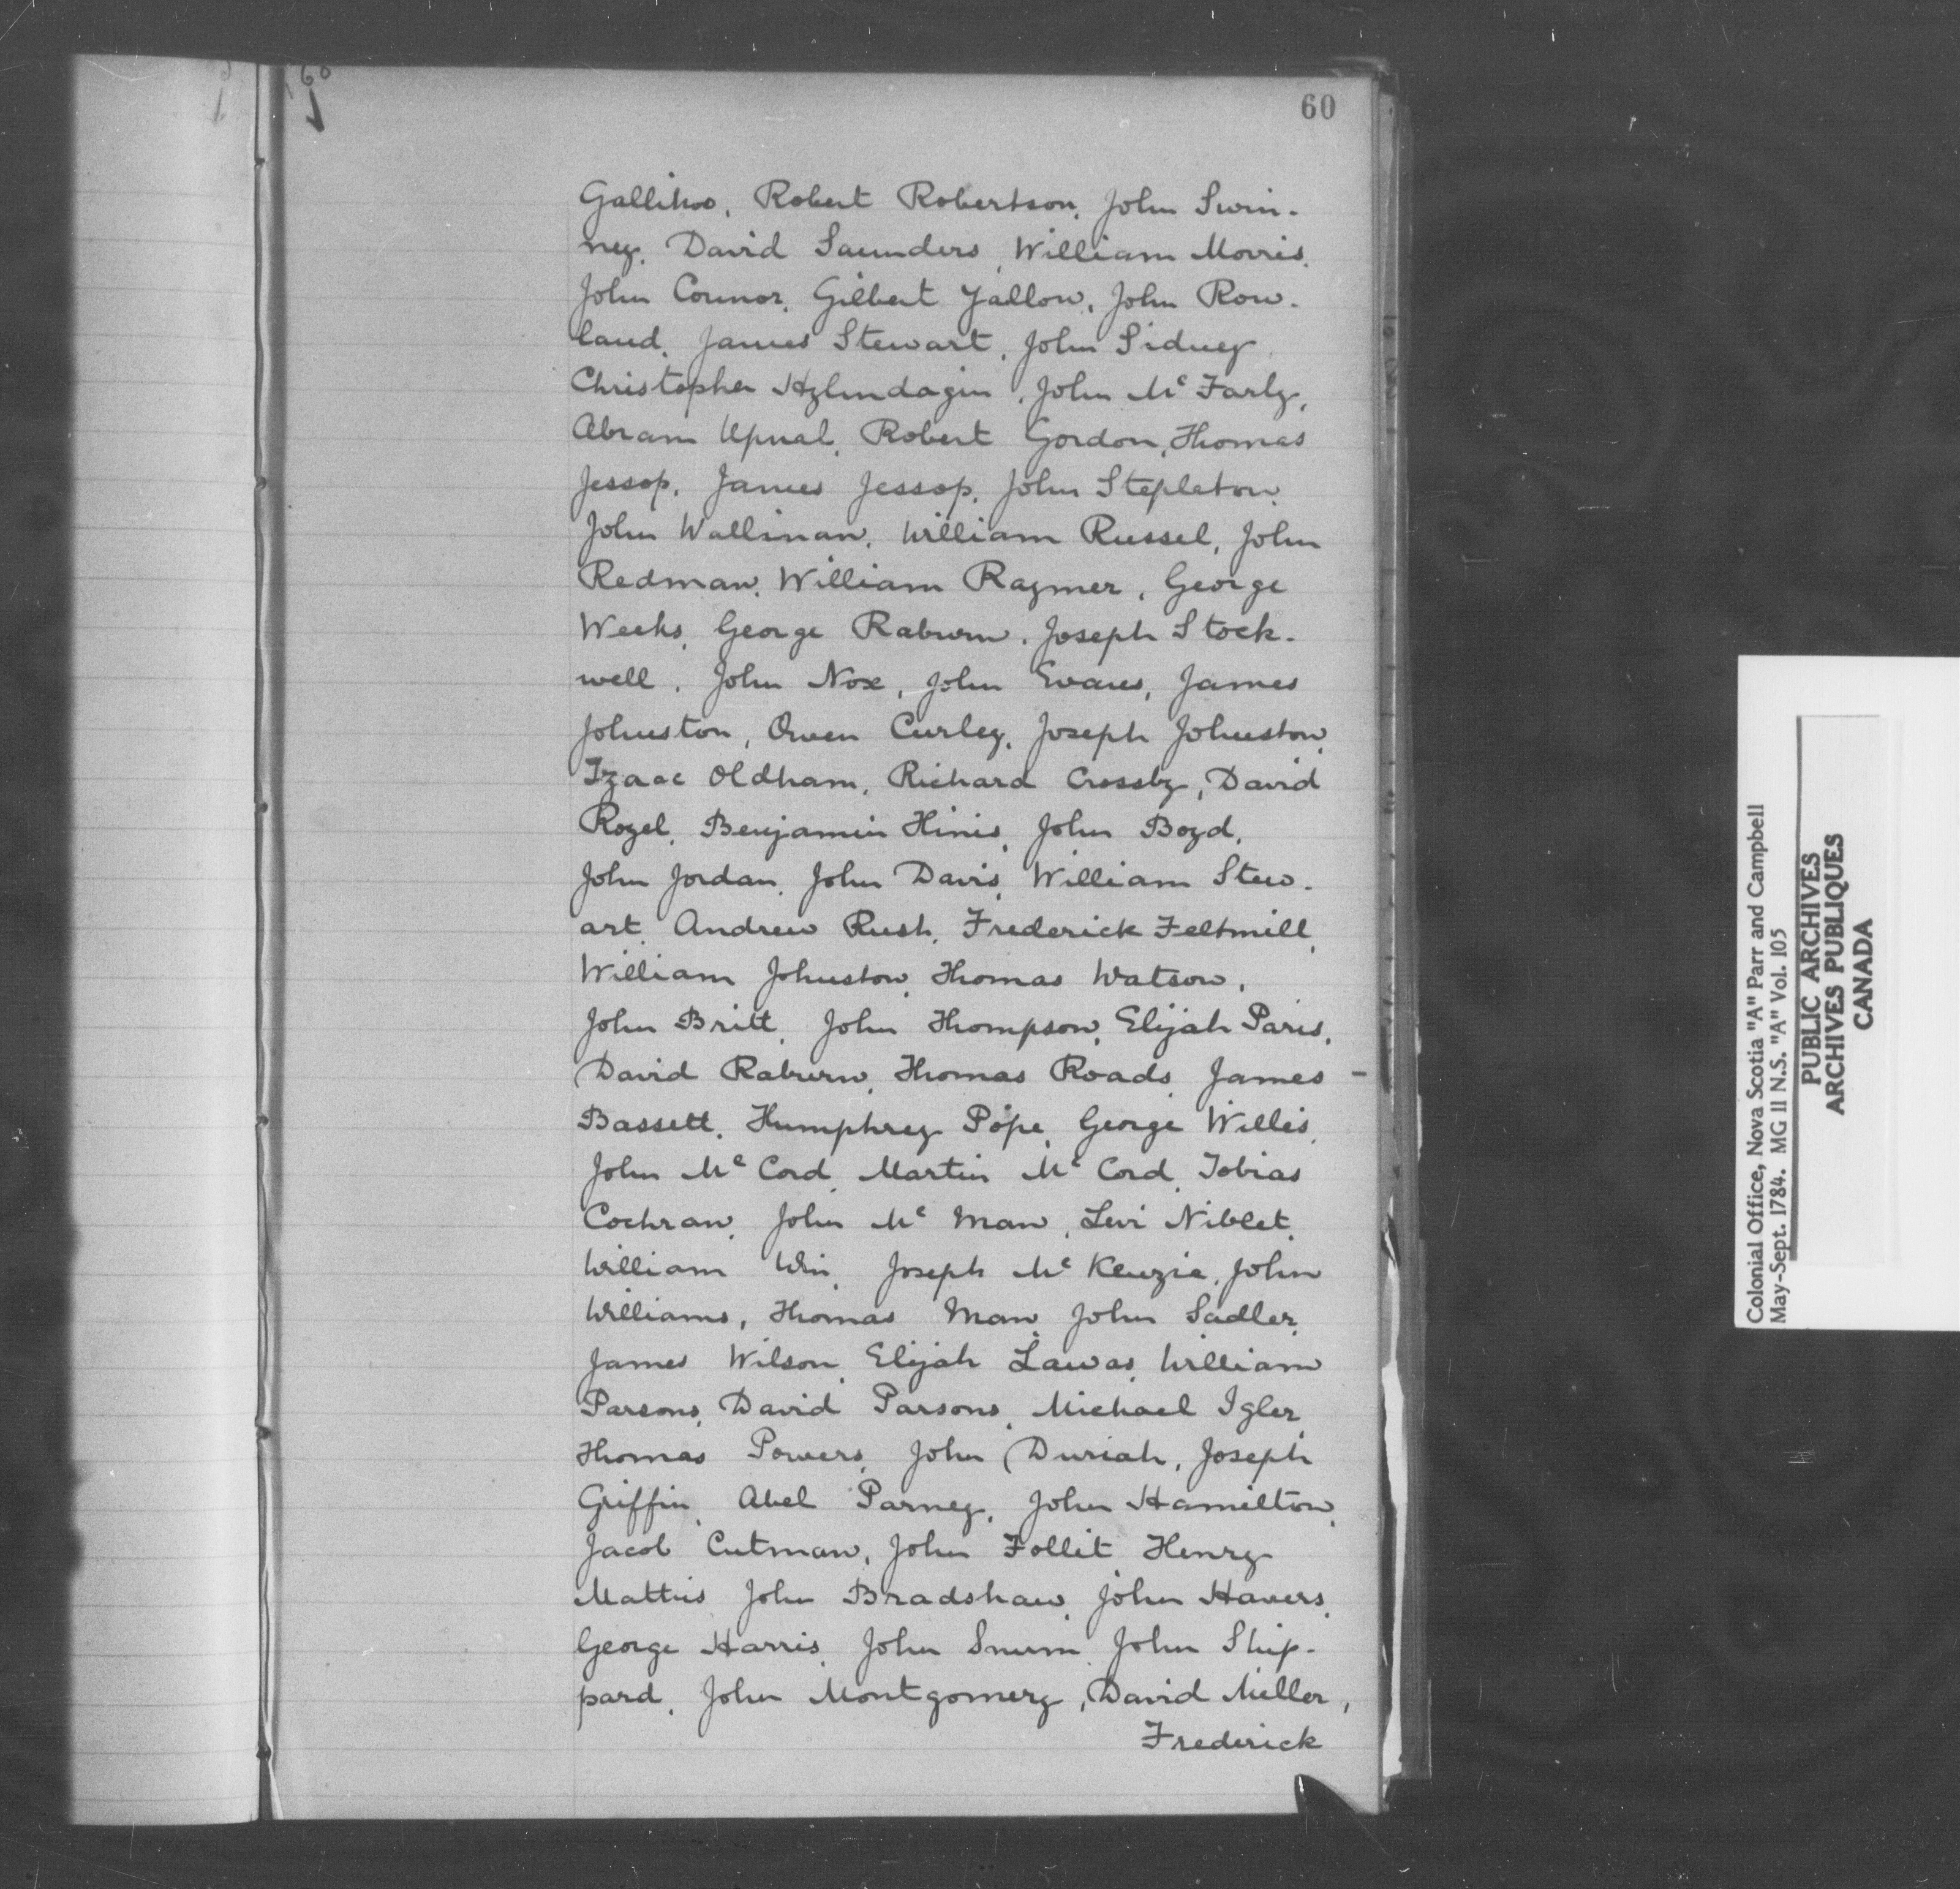 60
Gallihoo, Robert Robertson, John Swin-
ney, David Saunders, William Morris,
John Connor, Gilbert Yallow, John Row-
land, James Stewart, John Sidney
Christopher, John Mc Farly,
Abram Upnal, Robert Gordon, Thomas
Jessop, James Jessop, John Stepleton,
John Wallinan, William Russel, John
Redman, William Raymer, George
Weeks, George Raburn, Joseph Stock-
well, John Nox, John Evans, James
Johnston, Owen Curley, Joseph Johnston,
Izaac Oldham, Richard Crossby, David
Rozel, Benjamin Hinis, John Boyd,
John Jordan, John Davis, William Stew-
art, Andrew Rush, Frederick Feltmill,
William Johnston, Thomas Watson,
John Britt, John Thompson, Elijah Paris,
David Raburn, Thomas Roads, James
Bassett, Humphrey Pope, George Willis,
John Mc Cord, Martin Mc Cord, Tobias
Cochran, John Mc Man, Levi Niblet,
William Win, Joseph Mc Kenzie, John
Williams, Thomas Man, John Sadler,
James Wilson, Elijah Lawas, William
Parsons, David Parsons, Michael Igler,
Thomas Powers, John Duriah, Joseph
Griffin, Abel Parney, John Hamilton,
Jacob Cutman, John Follit Henry
Mattis John Bradshaw, John Havers,
George Harris, John Snum, John Ship-
pard, John Montgomery, David Miller,
Frederick
Colonial Office, Nova Scotia "A" Parr and Campbell
May-Sept. 1784. MG 11 N.S. "A" Vol. 105
PUBLIC ARCHIVES
ARCHIVES PUBLIQUES
CANADA